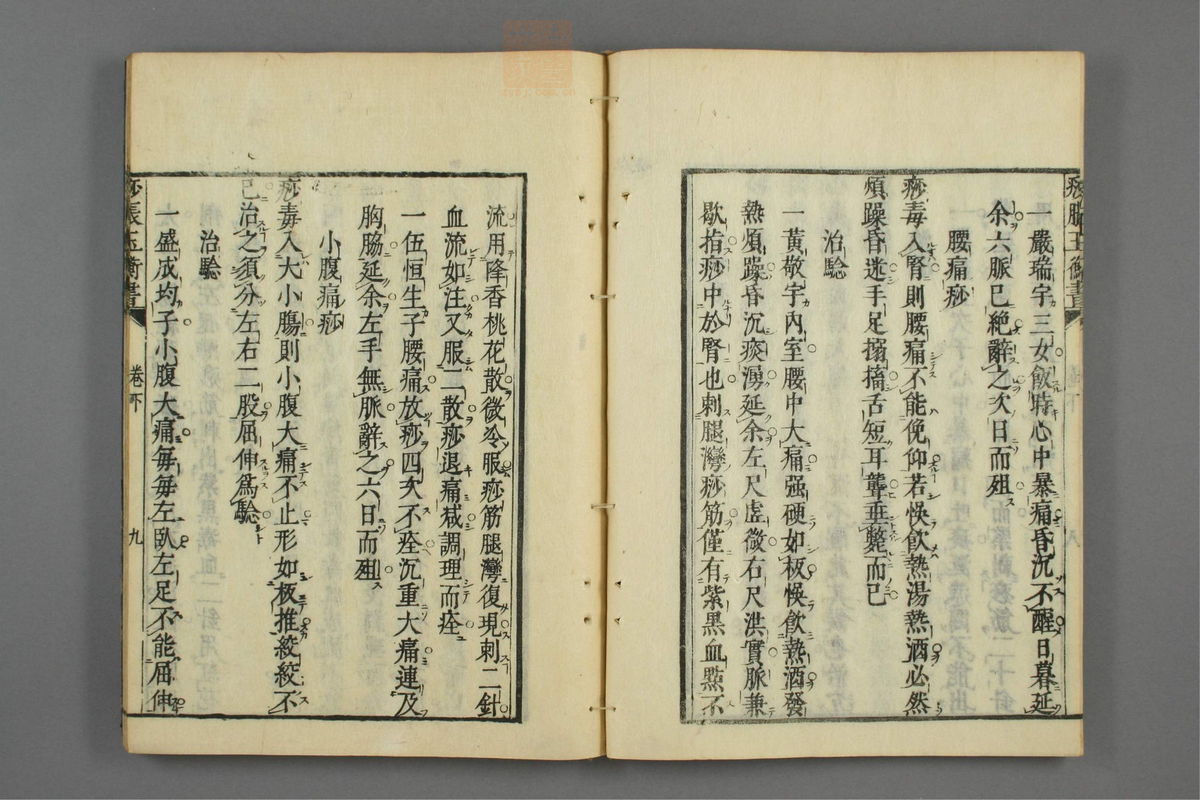 一嚴瑞宇三女飯時心中暴痛昏沉不醒日暮延
余六脈已絶辭之次日而殂
腰痛痧
痧毒入腎則腰痛不能俛仰若悞飲熱湯熱酒必然
煩躁昏迷手足搐搦舌短耳聾垂斃而已
治驗
一黃敬宇內室腰中大痛强硬如板悞飲熱酒發
熱煩躁昏沉痰湧延余左尺虛微右尺洪實脈兼
歇指痧中於腎也刺腿灣痧筋僅有紫黑血㸃不
流用降香桃花散微冷服痧筋腿灣復現刺二針
血流如注又服二散痧退痛减調理而痊
一伍恒生子腰痛放痧四次不痊沉重大痛連及
胸脇延余左手無脈辭之六日而殂
小腹痛痧
痧毒入大小腸則小腹大痛不止形如板推絞絞不
已治之須分左右二股屈伸爲驗
治驗
一盛成均子小腹大痛每每左臥左足不能屈伸
痧脹玉衡書
卷下
九